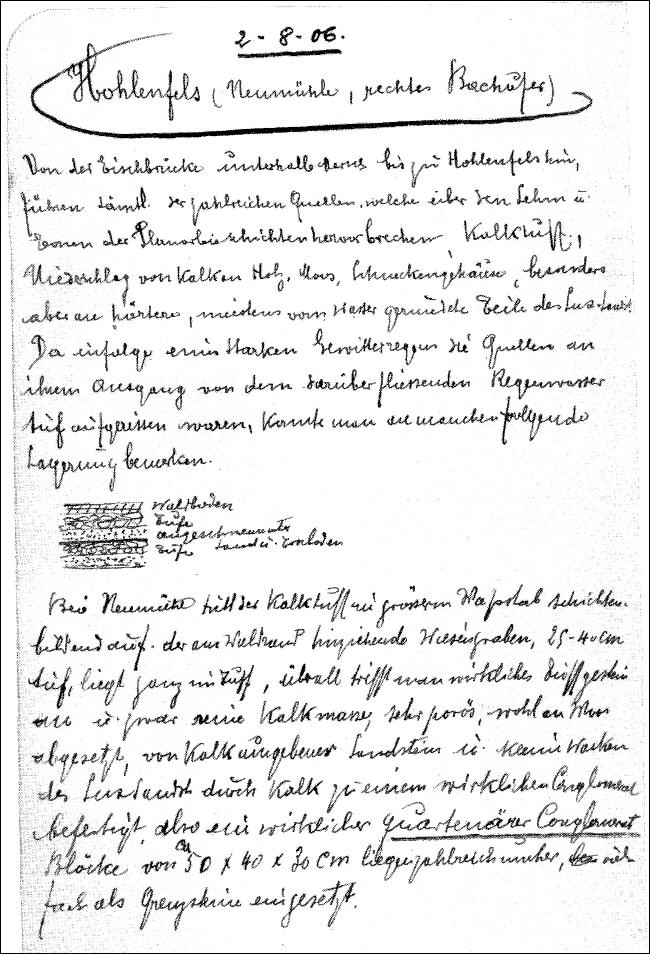 2-8-06.
Hohlenfels (Neumühle, rechtes Bachufer)
Von der Eischbrücke unterhalb Mersch bis zu Hohlenfels hin,
führen sämtl. der zahlreichen Quellen, welche über den Lehm u.
Tonen der Planorbisschichten hervorbrechen, Kalktuff,
Niederschlag von Kalk an Holz, Moos, Schneckengehäuse, besonders
aber an härtere, meistens vom Wasser gerundete Teile des Lux. Sandst.
Da infolge eines starken Gewitterregens die Quellen an
ihrem Ausgang von dem darüber fliessenden Regenwasser
tief aufgerissen waren, konnte man an manchen folgende
Lagerung bemerken.
Waldboden
Tufe
angeschwemmter
Sand u. Tonboden
Tufe
Bei Neumühle tritt der Kalktuff in grösserm Maßstab schichten-
bildend auf. der am Waldrand hinziehende Wiesengraben, 25-40 cm
tief, liegt ganz im Tuff, überall trifft man wirkliches Tuffgestein
an u. zwar reine Kalkmasse, sehr porös, wohl an Moos
abgesetzt, von Kalk umgebener Sandstein u. kleine Wacken
des Lux Sandst. durch Kalk zu einem wirklichen Conglomerat
befestigt, also ein wirklicher quartenärer Conglomerat
Blöcke von ca 50 x 40 x 30 cm liegen zahlreich umher, viel-
fach als Grenzsteine eingesetzt.